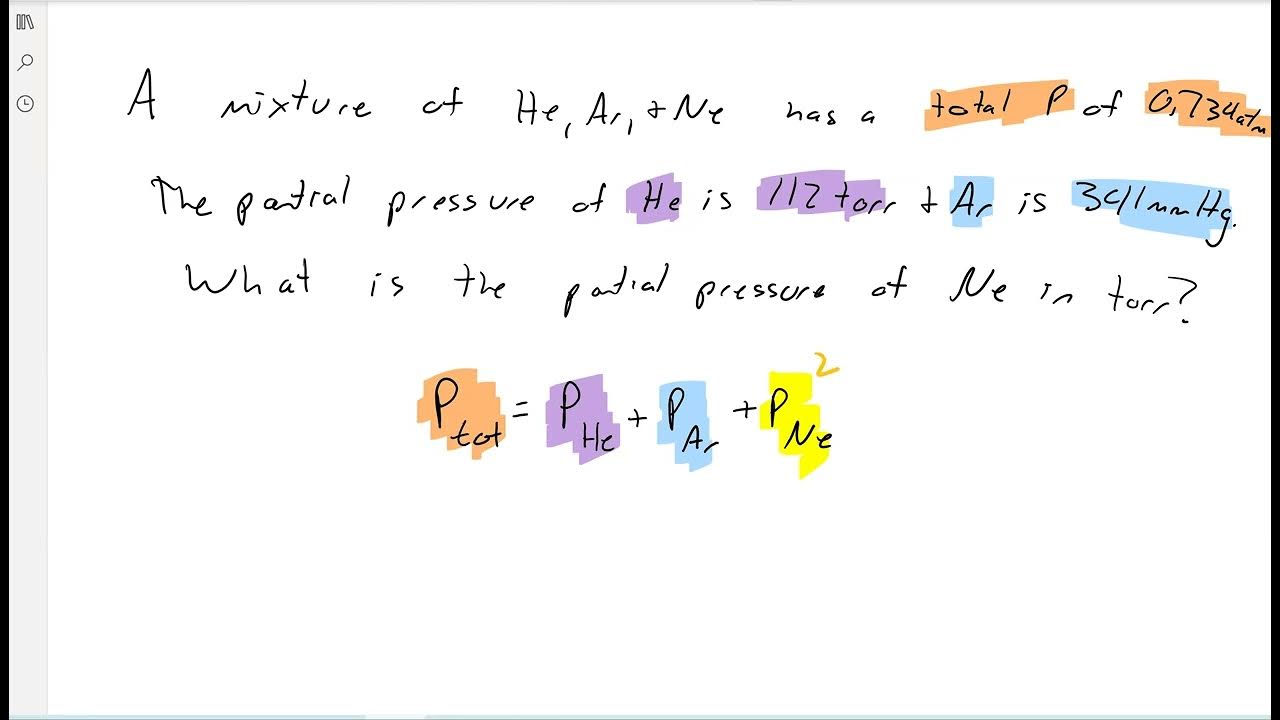 A mixture of He, Ar, + Ne has a total P of 0.734 atm
The partial pressure of He is 112 torr + Ar is 341 mmHg.
What is the partial pressure of Ne in torr?
P_tot = P_He + P_Ar + P_Ne ?